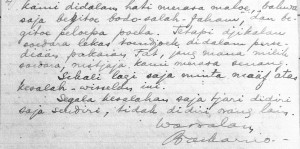 kami didalam hati merasa maloe, bahwa
saja begitoe bodo-salah-faham, dan be-
gitoe peloepa poela. Tetapi djikalau
saudara soeka toendjoek didalam
pakaian jang mana milik
saudara, nistjaja, kami merasa senang.
Sekali lagi saja minta maäf atas
kesalah-wisselan ini.
Segala kesalahan saja tjari didiri
saja sendiri, tidak didiri orang lain.
Wassalam,
Soekarno.-